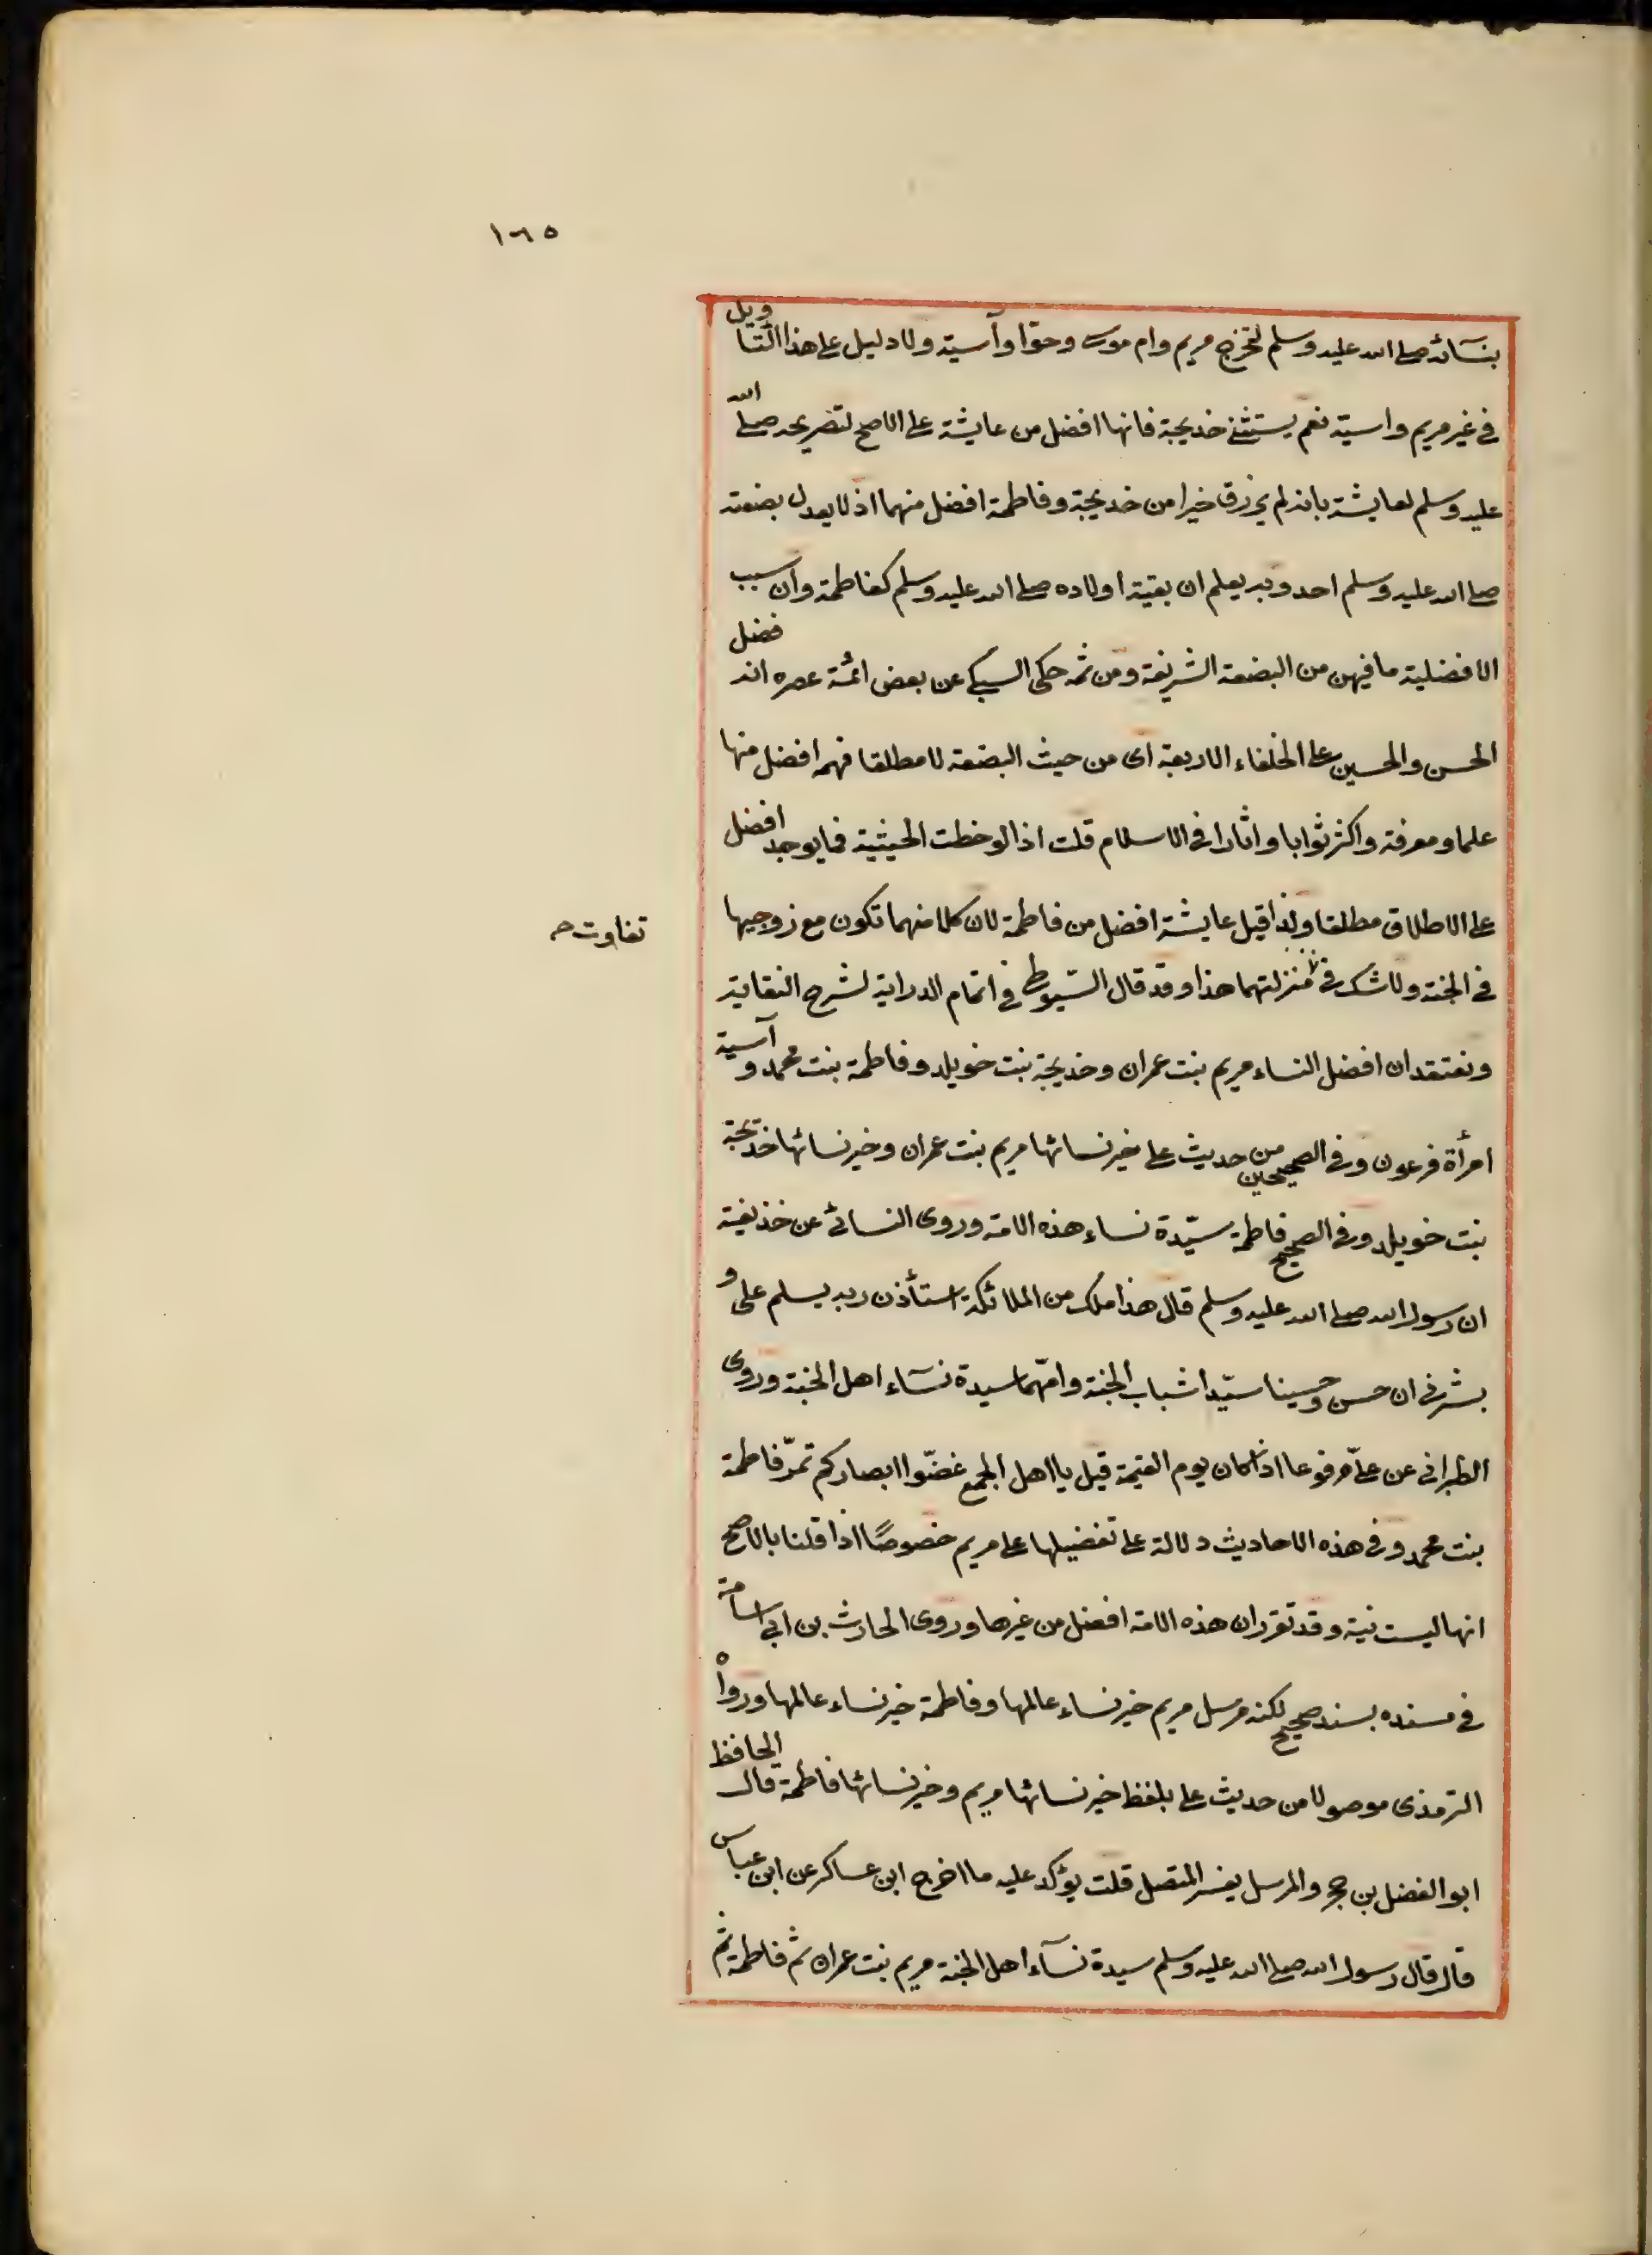 ١٦٥
بنسآئه صلى الله عليه وسلم لتخرج مريم وام موسى وحوّا وآسية ولا دليل على هذا التاويل
في غير مريم واسية نعم يستثنى خديجة فانها افضل من عايشة على الاصح لتصريحه صلى الله
عليه وسلم لعايشة بانه لم يرزق خيرا من خديجة وفاطمة افضل منهما اذ لا يعدل بضعته
صلى الله عليه وسلم احد وبه يعلم ان بقية اولاده صلى الله عليه وسلم كفاطمة وان سبب
الافضلية ما فيهن من البضعة الشريفة ومن ثمه حكى السبكي عن بعض ائمة عصره انه فضل
الحسن والحسين على الخلفاء الاربعة اى من حيث البضعة لا مطلقا فهم افضل منها
علما ومعرفة واكثر ثوابا واثارا في الاسلام قلت اذا لوحظت الحيثية فما يوجد افضل
على الاطلاق مطلقا ولذا قيل عايشة افضل من فاطمة لان كلا منهما تكون مع زوجها
تفاوت صح
في الجنة ولا شك في منزلتهما هذا وقد قال السيوطي في اتمام الدراية لشرح النقاية
ونعتقد ان افضل النساء مريم بنت عمران وخديجة بنت خويلد وفاطمة بنت محمد وآسية
امرأة فرعون وفي الصحيحين من حديث على خير نسائها مريم بنت عمران وخير نسائها خديجة
بنت خويلد وفي الصحيح فاطمة سيّدة نساء هذه الامة وروى النسائى عن حذيفة
ان رسول الله صلى الله عليه وسلم قال هذا ملك من الملائكة استأذن ربه يسلم على و
بشرنى ان حسن وحسينا سيّدا شباب الجنة وامّهما سيدة نسآء اهل الجنة وروى
الطبرانى عن علىّ مرفوعا اذا كان يوم القيمة قيل يا اهل الجمع غضّوا ابصاركم تمرّ فاطمة
بنت محمد وفى هذه الاحاديث دلالة على تفضيلها على مريم خصوصًا اذا قلنا بالاصح
انها ليست نبية وقد تقرر ان هذه الامة افضل من غيرها وروى الحارث بن ابى اسامة
في مسنده بسند صحيح لكنه مرسل مريم خير نساء عالمها وفاطمة خير نساء عالمها ورواه
الترمذى موصولا من حديث على بلفظ خير نسائها مريم وخير نسائها فاطمة قال الحافظ
ابو الفضل بن حجر والمرسل يفسر المتصل قلت يؤكد عليه ما اخرج ابن عساكر عن ابن عباس
قال قال رسول الله صلى الله عليه وسلم سيدة نسآء اهل الجنة مريم بنت عمران ثم فاطمة ثم